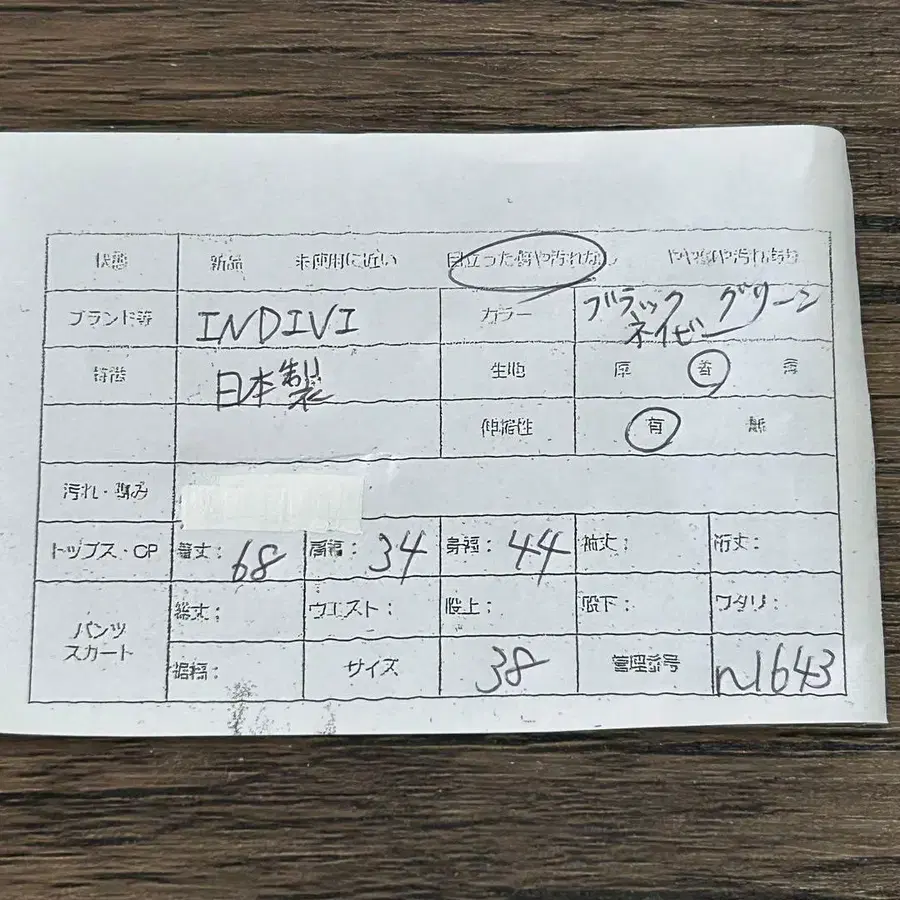 状態 新品 未使用に近い 目立った傷や汚れなし やや傷や汚れあり
ブランド等 INDIVI カラー ブラック グリーン
ネイビー
特徴 日本製 生地 厚 普 薄
伸縮性 有 無
汚れ・傷み
トップス・OP 着丈: 68 肩幅: 34 身幅: 44 袖丈: 裄丈:
パンツ
スカート
総丈: ウエスト: 股上: 股下: ワタリ:
裾幅: サイズ 38 管理番号 n1643